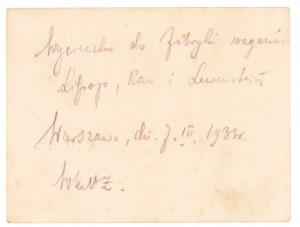 Wycieczka do fabryki wagonów
Lilpop, Rau i Loewenstein
Warszawa, dn. 7. III. 1933r.